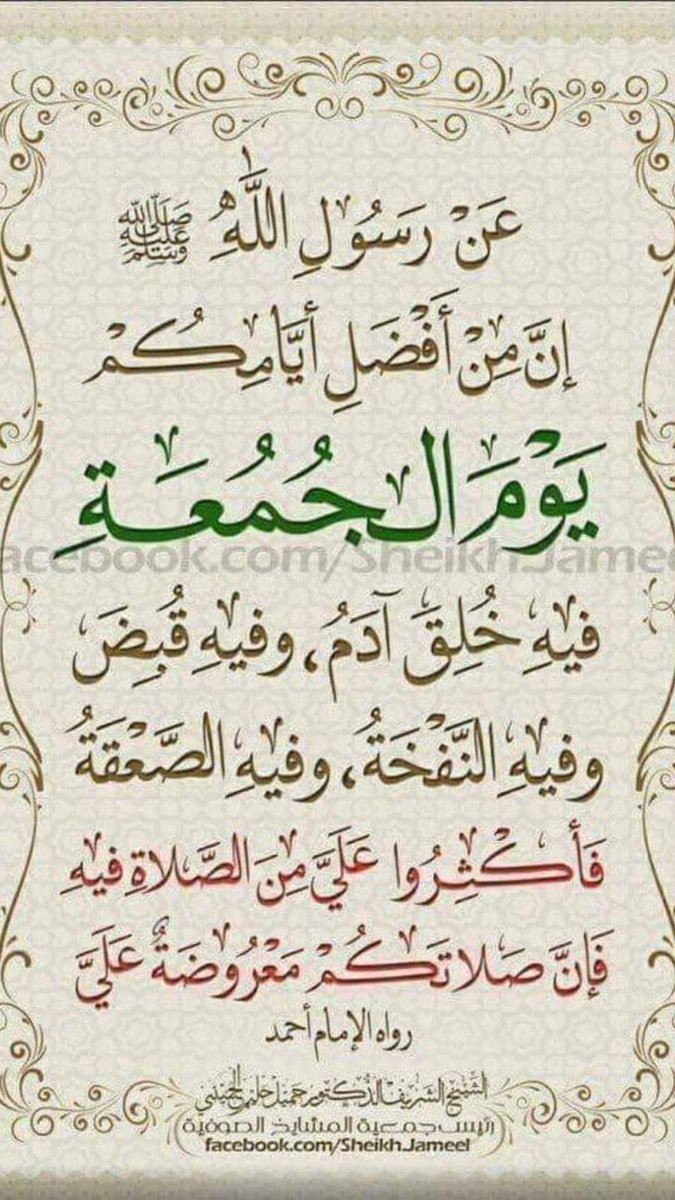 عَنْ رَسُولِ اللَّهِ صَلَّى اللهُ عَلَيْهِ وَسَلَّم
إِنَّ مِنْ أَفْضَلِ أَيَّامِكُمْ
يَوْمَ الْجُمُعَةِ
facebook.com/Sheikh.Jameel
فِيهِ خُلِقَ آدَمُ، وَفِيهِ قُبِضَ
وَفِيهِ النَّفْخَةُ، وَفِيهِ الصَّعْقَةُ
فَأَكْثِرُوا عَلَيَّ مِنَ الصَّلَاةِ فِيهِ
فَإِنَّ صَلَاتَكُمْ مَعْرُوضَةٌ عَلَيَّ
رواه الإمام أحمد
الشيخ الشريف الدكتور جميل حليم الحسيني
رئيس جمعية المشايخ الصوفية
facebook.com/Sheikh.Jameel